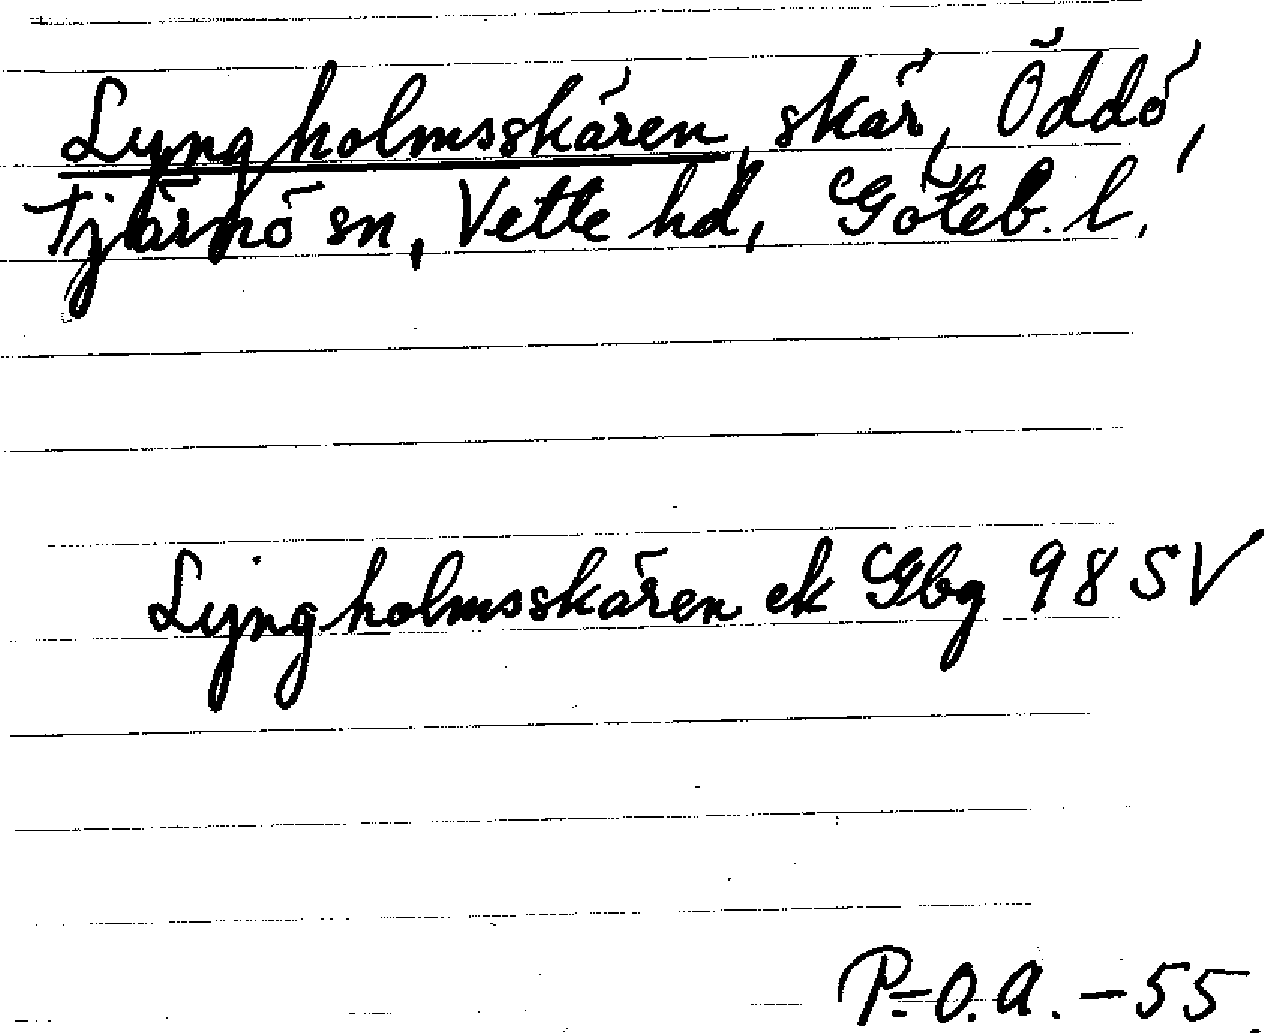 Lyngholmsskären, skär, Öddö,
Tjärnö sn, Vette hd, Göteb. l.
Lyngholmsskären ek Gbg 98 SV
P.-O.A. -55